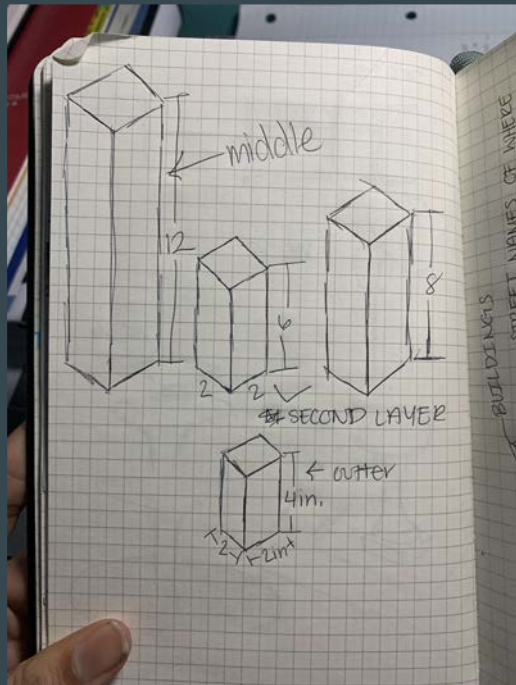 middle
12
6
8
2 2
SECOND LAYER
← outter
4in.
2
2in
BUILDINGS
STREET NAMES OF WHERE